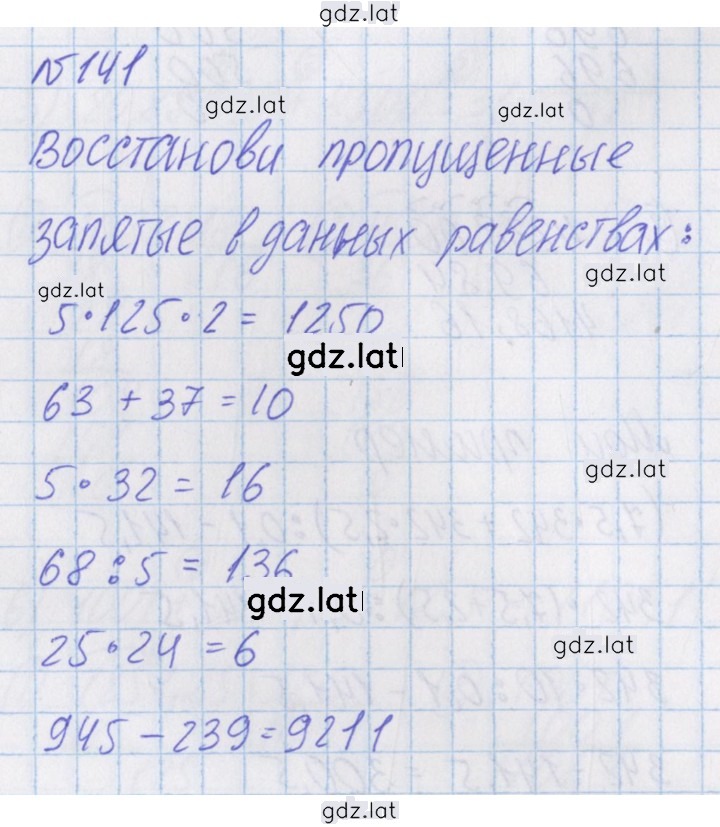 gdz.lat
№141
gdz.lat gdz.lat
Восстанови пропущенные
запятые в данных равенствах:
gdz.lat
gdz.lat
5·125·2 = 1250
gdz.lat
63 + 37 = 10
5·32 = 16
gdz.lat
68:5 = 136
gdz.lat
25·24 = 6
gdz.lat
945-239=9211
gdz.lat